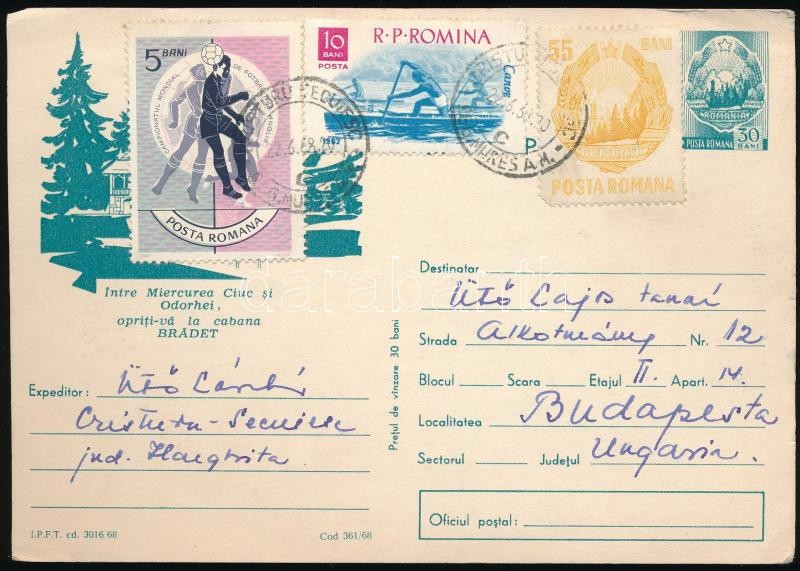 5 BANI
CAMPIONATUL MONDIAL DE FOTBAL ANGLIA
POSTA ROMANA
10 BANI POSTA
R·P·ROMINA
Canoe
1962
55 BANI
POSTA ROMANA
ROMANIA
POSTA ROMANA
30 BANI
MUREȘ A.M.
Intre Miercurea Ciuc și
Odorhei,
opriți-vă la cabana
BRĂDET
Expeditor: Ütő
Cristuru-Secuiesc
jud. Harghita
Prețul de vînzare 30 bani
Destinatar Ütő Lajos tanár
Strada Alkotmány Nr. 12
Blocul Scara Etajul II. Apart. 14.
Localitatea Budapesta
Sectorul Județul Ungaria.
Oficiul poștal:
I.P.F.T. cd. 3016/68
Cod 361/68
darabanth